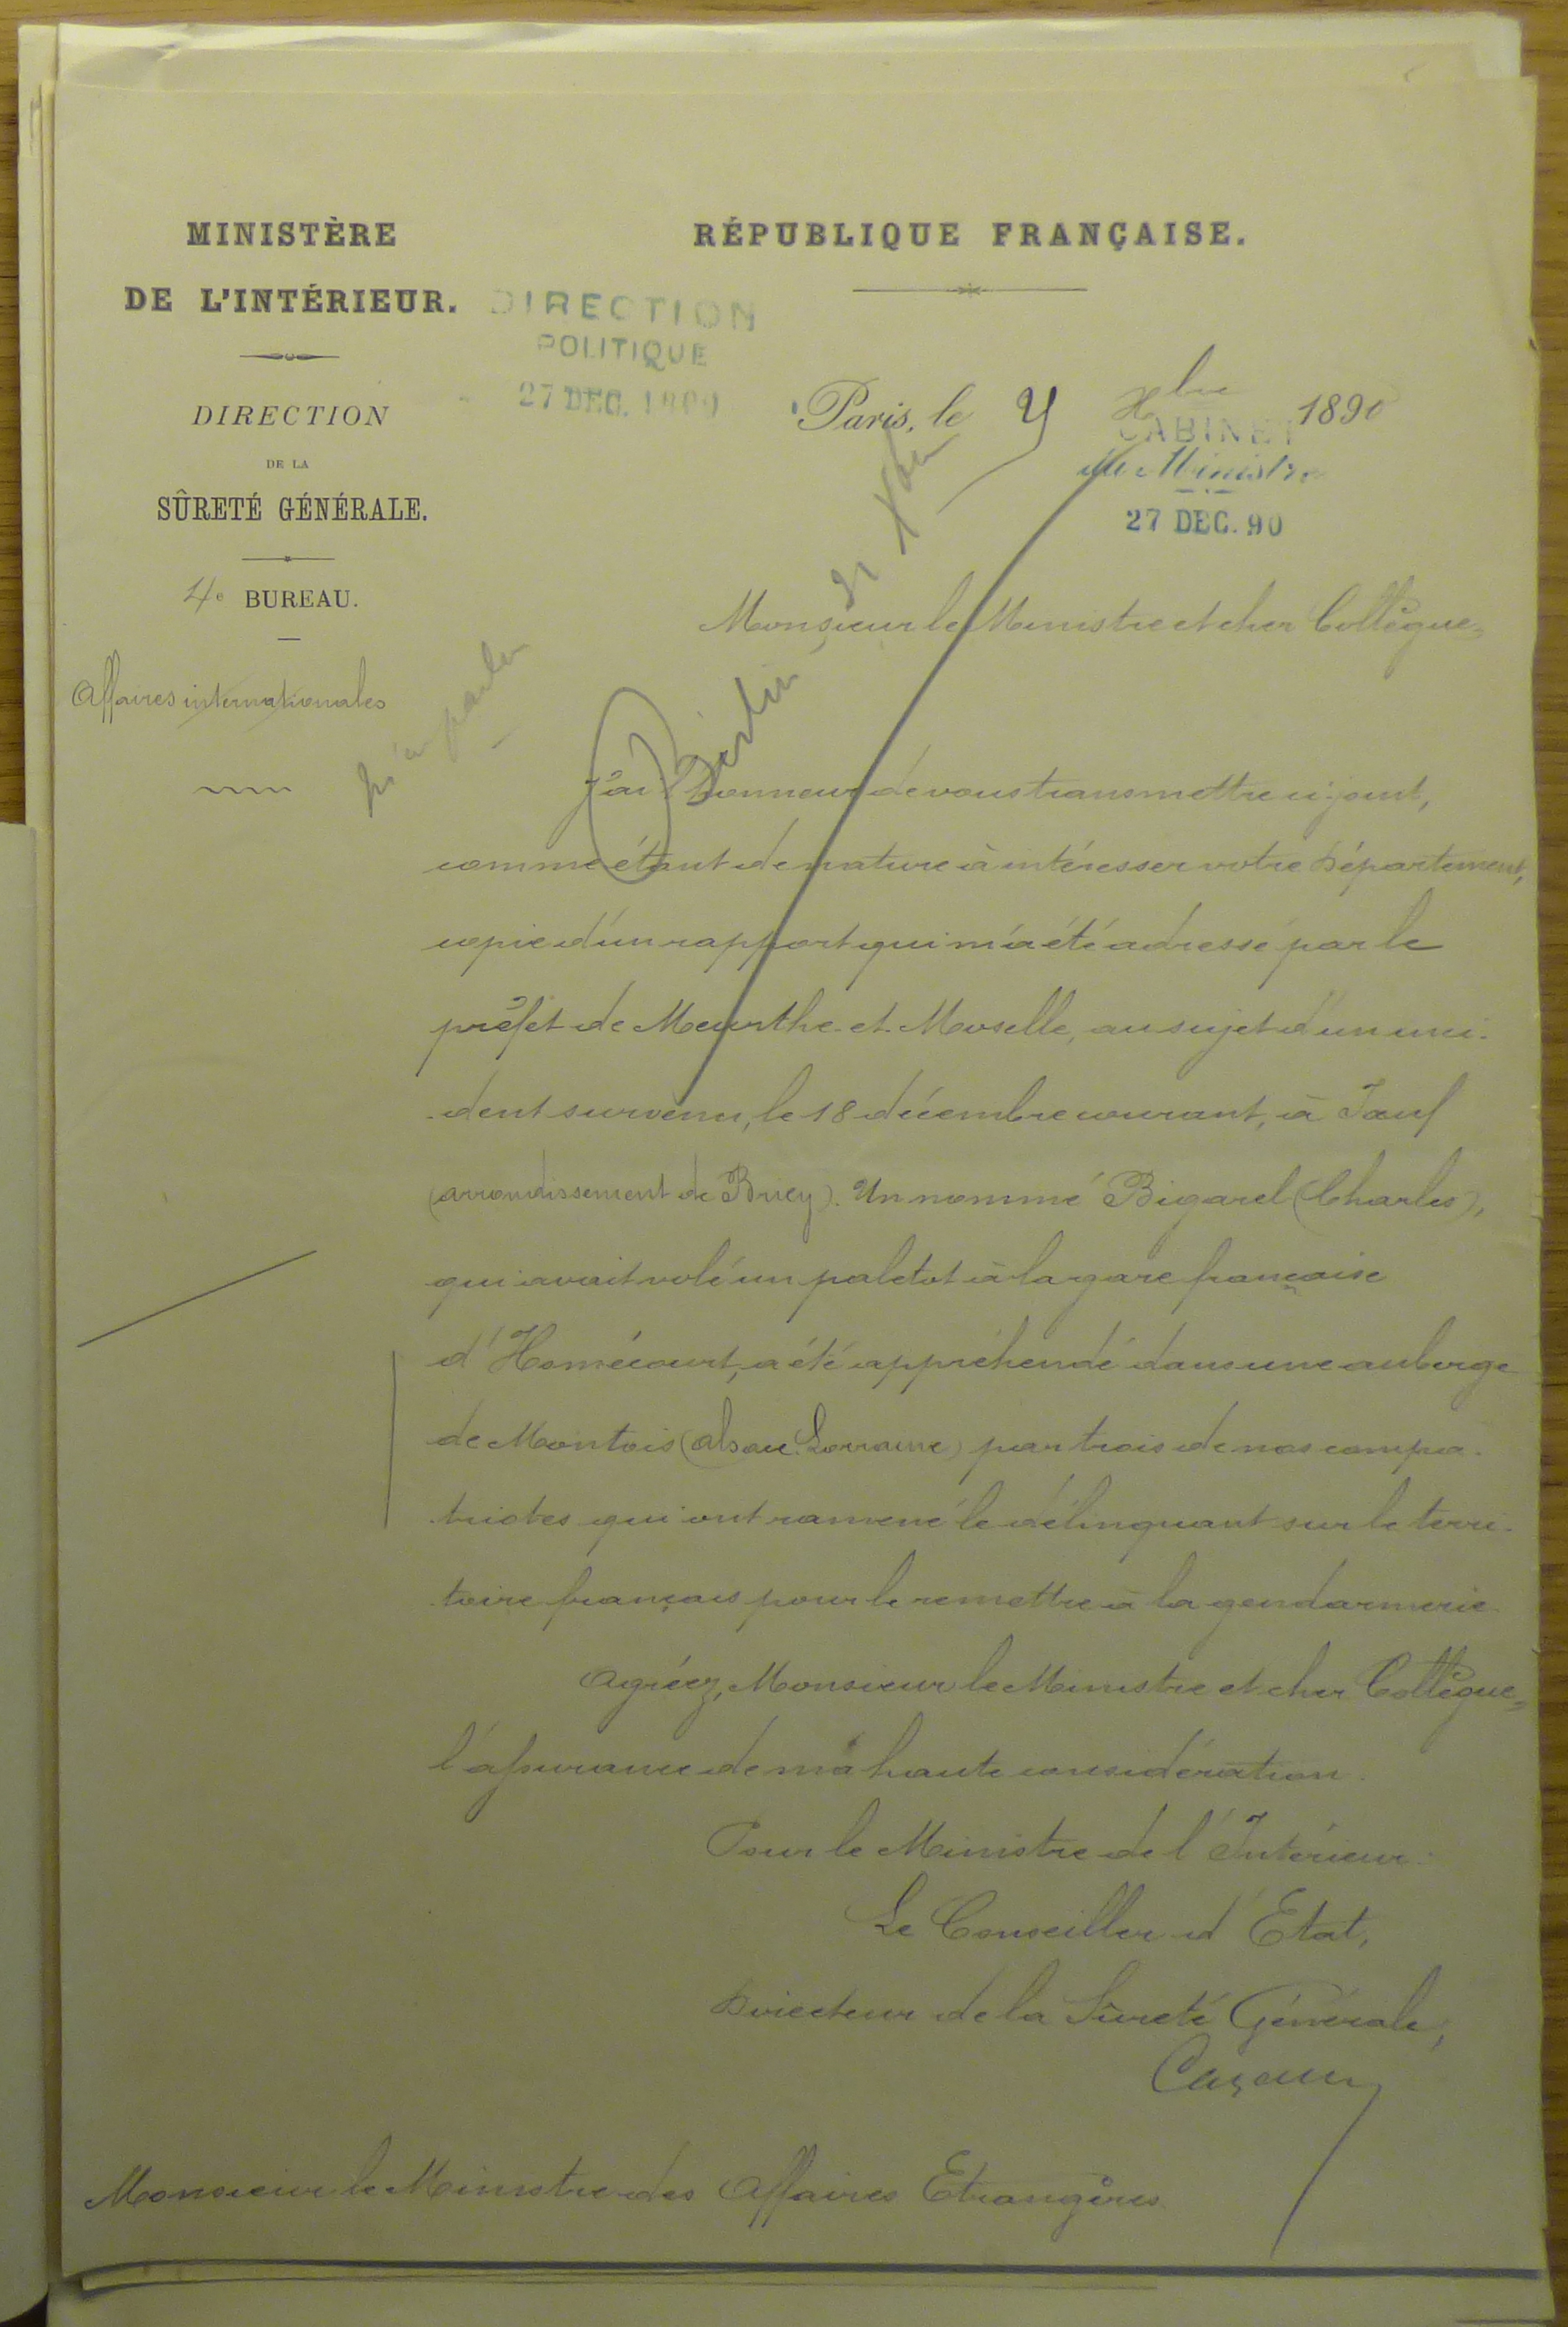 MINISTÈRE
DE L'INTÉRIEUR.
DIRECTION
DE LA
SÛRETÉ GÉNÉRALE.
4e BUREAU.
Affaires internationales
RÉPUBLIQUE FRANÇAISE.
DIRECTION
POLITIQUE
27 DEC. 1890
Paris, le Xbre 1890
CABINET
du Ministre
27 DEC. 90
Berlin 31 Xbre
Monsieur le Ministre et cher Collègue,
J'ai l'honneur de vous transmettre ci-joint,
comme étant de nature à intéresser votre Département,
copie d'un rapport qui m'a été adressé par le
préfet de Meurthe-et-Moselle, au sujet d'un inci-
dent survenu, le 18 décembre courant, à Joeuf
(arrondissement de Briey). Un nommé Bigarel (Charles),
qui avait volé un paletot à la gare française
d'Homécourt, a été appréhendé dans une auberge
de Montois (Alsace-Lorraine) par trois de nos compa-
triotes qui ont ramené le délinquant sur le terri-
toire français pour le remettre à la gendarmerie.
Agréez, Monsieur le Ministre et cher Collègue,
l'assurance de ma haute considération.
Pour le Ministre de l'Intérieur:
Le Conseiller d'Etat,
Directeur de la Sûreté Générale,
Monsieur le Ministre des Affaires Etrangères